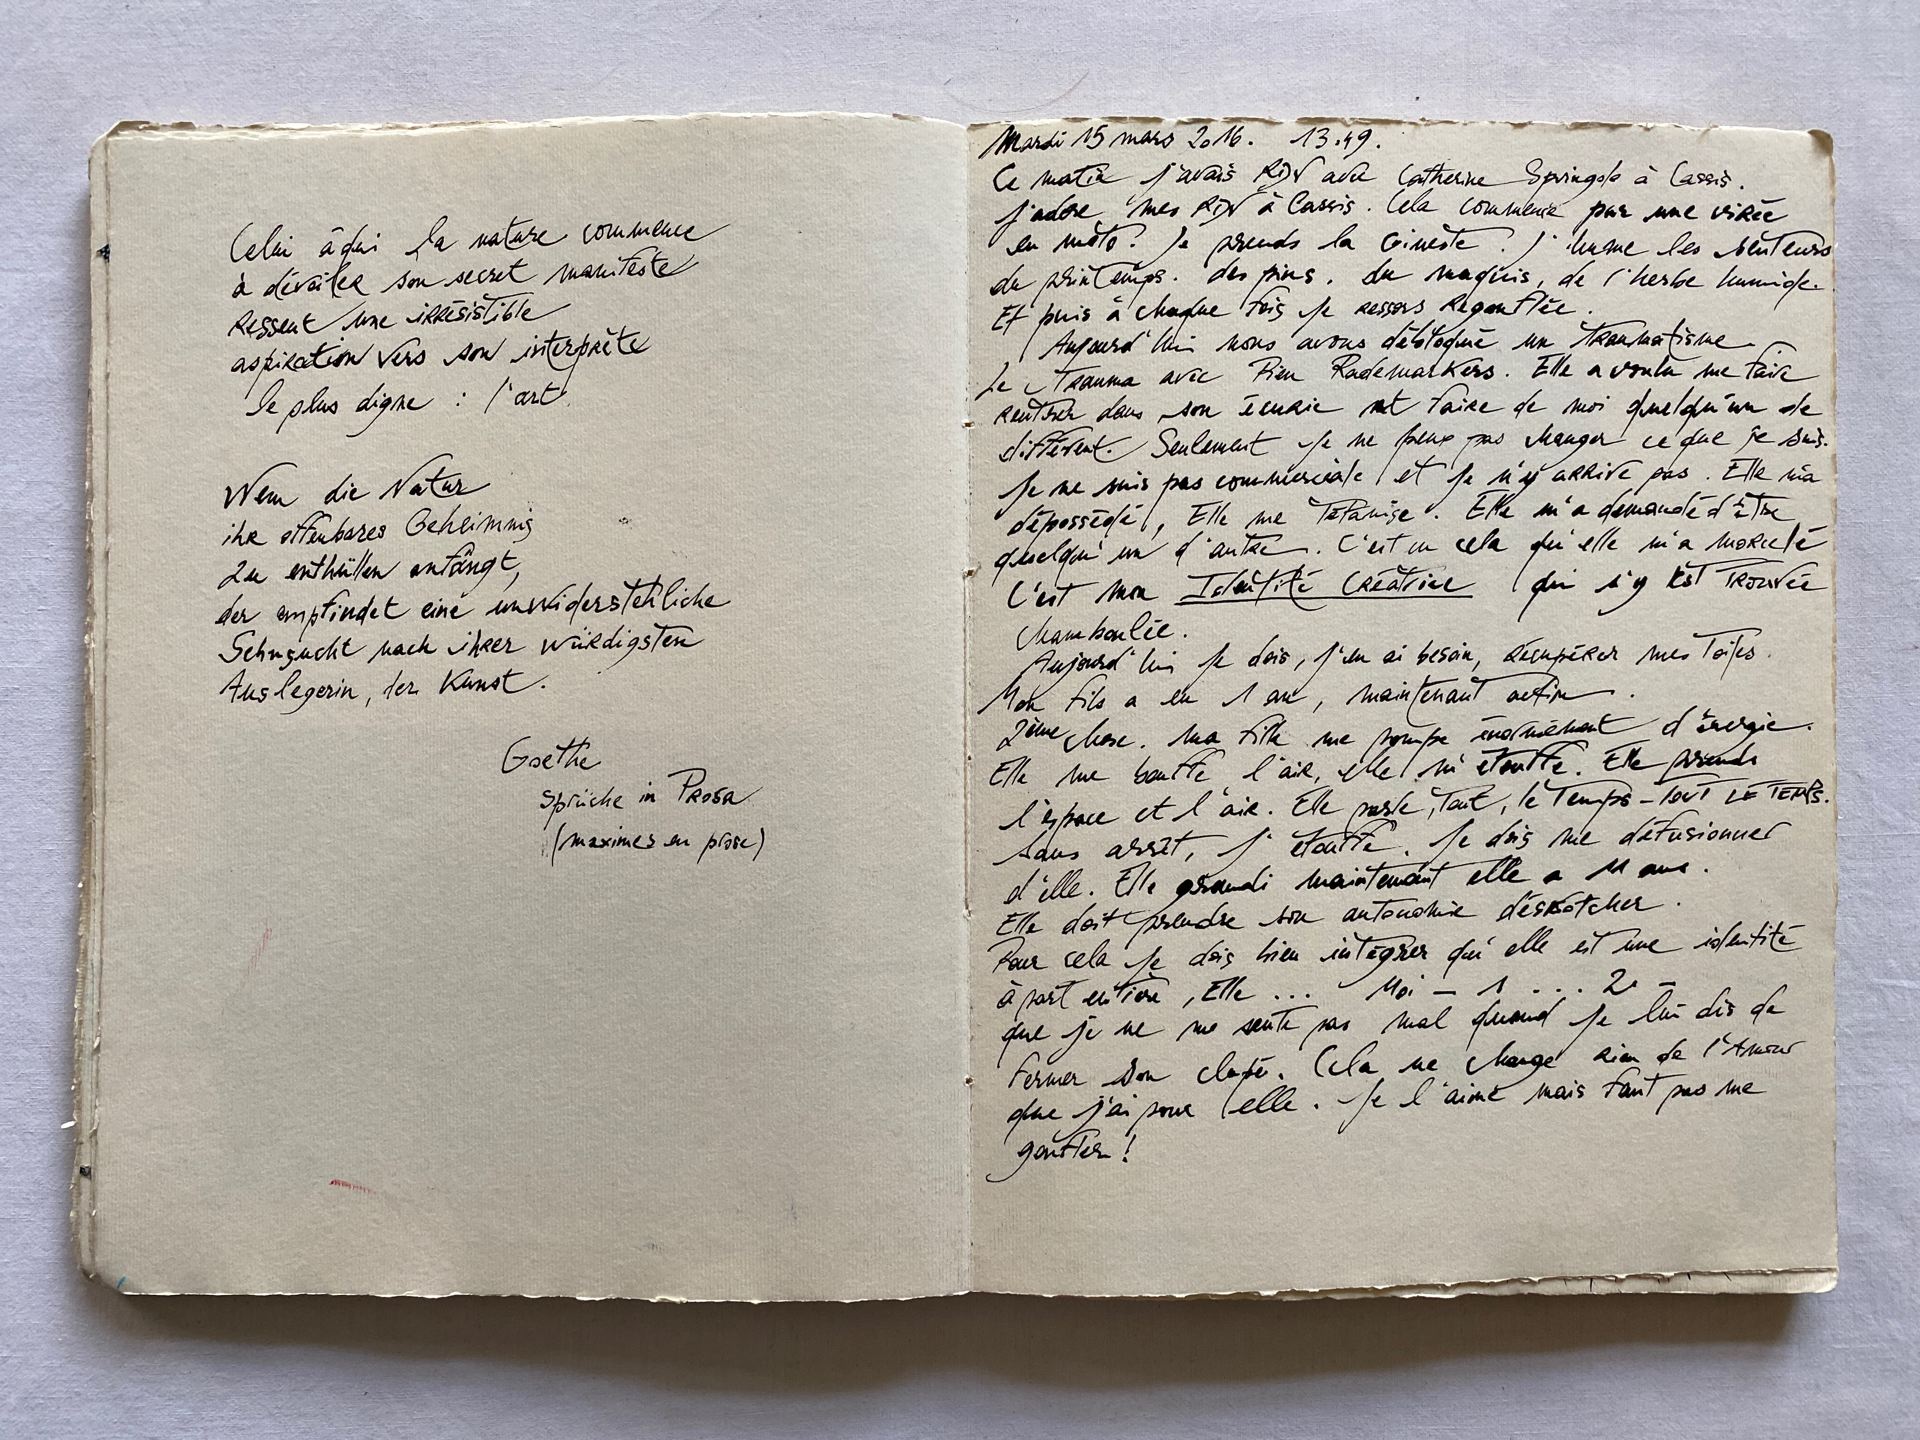 Celui à qui la nature commence
à dévoiler son secret manifeste
Ressent une irrésistible
aspiration vers son interprète
le plus digne : l'art
Wem die Natur
ihr offenbares Geheimnis
zu enthüllen anfängt,
der empfindet eine unwiderstehliche
Sehnsucht nach ihrer würdigsten
Auslegerin, der Kunst.
Goethe
Sprüche in Prosa
(maximes en prose)
Mardi 15 mars 2016. 13.49.
Ce matin j'avais RDV avec Catherine à Cassis.
j'adore mes RDV à Cassis. Cela commence par une virée
en moto. Je prends la Gineste. J'hume les senteurs
du printemps. des pins, du maquis, de l'herbe humide.
Et puis à chaque fois je ressors regonflée.
Aujourd'hui nous avons débloqué un traumatisme
Le Trauma avec Rien Rademarkers. Elle a voulu me faire
rentrer dans son écurie et faire de moi quelqu'un de
différent. Seulement je ne peux pas changer ce que je suis.
Je ne suis pas commerciale et je n'y arrive pas. Elle m'a
dépossédé, Elle me Tétanise. Elle m'a demandé d'être
quelqu'un d'autre. C'est en cela qu'elle m'a morcelé
C'est mon Identité Créatrice qui s'y est trouvée
chamboulée.
Aujourd'hui je dois, j'en ai besoin, récupérer mes toiles.
Mon fils a eu 1 an, maintenant
2ème chose. ma fille me pompe énormément d'énergie.
Elle me bouffe l'air, elle m'étouffe. Elle prends
l'espace et l'air. Elle parle, tout, le Temps - TOUT LE TEMPS.
Sans arrêt, j'étouffe. Je dois me défusionner
d'elle. Elle grandi maintenant elle a 11 ans.
Elle doit prendre son autonomie
Pour cela je dois bien intégrer qu'elle est une identité
à part entière, Elle ... Moi - 1 ... 2 -
que je ne me sente pas mal quand je lui dis de
fermer son clapet. Cela ne change rien de l'Amour
que j'ai pour elle. Je l'aime mais faut pas me
gonfler !